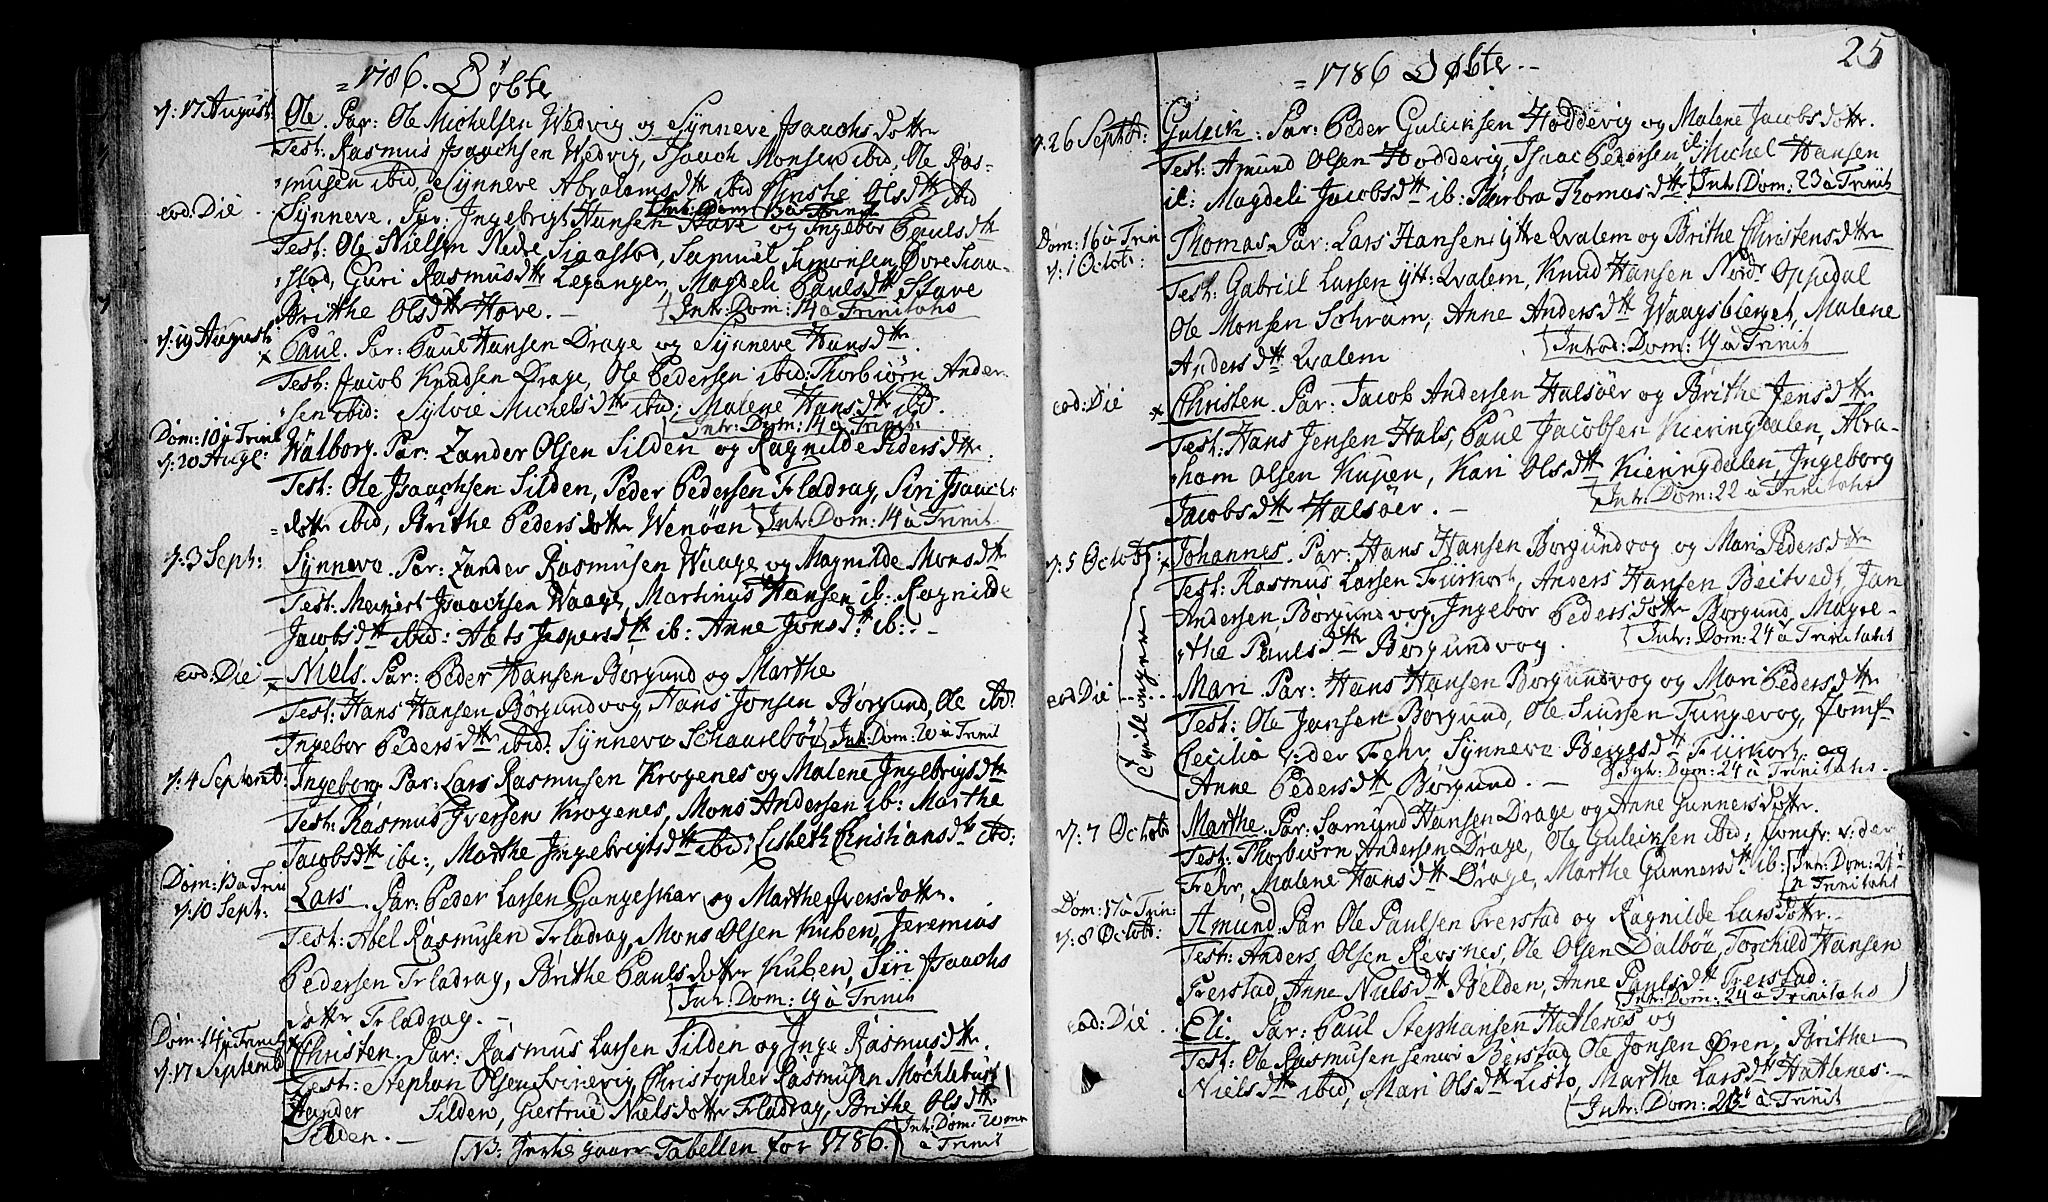 = 1786. Døbte
d: 17 August Ole. Par: Ole Michelsen Wedvig og Synneve Isaachsdotter
Test: Rasmus Isaachsen Wedvig, Isaach Monsen ibid, Ole Ras-
musen ibid, Synneve Abrahamsdtt ibid Christie Olsdtt ibid
Intr: Dom: 13 a Trinit
eod: Die Synneve. Par. Ingebrigt Hansen Hove og Ingebor Paulsdtt
Test: Ole Nielsen Nedre Siaastad, Samuel Simonsen Øvre Siaa-
stad, Guri Rasmusdtt Leganger, Magdeli Paulsdtt Stave
Brithe Olsdtr Hove. - Intr: Dom: 14 a Trinitatis
d: 19 August: × Paul. Par: Paul Hansen Drage og Synneve Hansdtt.
Test: Jacob Knudsen Drage, Ole Pedersen ibid: Thorbiørn Ander-
sen ibid: Sylvie Michelsdtt ibid; Malene Hansdtt ibid.
Intr: Dom: 14 a Trinit:
Dom: 10 a Trinit
d: 20 Aug: Walborg. Par: Zander Olsen Silden og Ragnilde Pedersdtt.
Test: Ole Isaachsen Silden, Peder Pedersen Fladrag, Siri Isaachs
dotter ibid, Brithe Pedersdotter Wenøan Intr: Dom: 14 a Trinit
d: 3 Sept: Synneva. Par: Zander Rasmusen Waage og Magnilde Monsdtt
Test: Meinert Isaachsen Waage, Martinus Hansen ib: Ragnilde
Jacobsdtt ibid: Alets Jespersdtt ib: Anne Jonsdtt ib: -
eod: Die × Niels. Par: Peder Hansen Borgund og Marthe
Test: Hans Hansen Borgundvog, Hans Jonsen Borgund, Ole ibd:
Ingebor Pedersdtt ibid: Synneva Schaarbøe Intr: Dom: 20 a Trinit
d: 4 Septemb: Ingeborg Par: Lars Rasmusen Krogenes og Malene Ingebrigtsdtt
Test: Rasmus Iversen Krogenes, Mons Andersen ib: Marthe
Jacobsdtt ibi:, Marthe Ingebrigtsdtt ibid: Lisbeth Christiansdtt ibd:
Dom: 13 a Trin
d: 10 Sept: Lars. Par: Peder Larsen Gangeskar og Marthe Iversdotter.
Test: Abel Rasmusen Fladrag, Mons Olsen Kuben, Jeremias
Pedersen Fladrag, Brithe Paulsdotter Kuben, Siri Isaachs
dotter Fladrag. - Intr: Dom: 19 a Trinit
Dom: 14 a Trinit
d: 17 Septemb × Christen. Par: Rasmus Larsen Silden og Inge Rasmusdtt.
Test: Stephan Olsen Svinevig, Christopher Rasmusen Mochlebust
Zander Silden, Giertrue Nielsdotter Fladrag, Brithe Olsdtt
Silden. - Intr: Dom: 20 a Trinit
NB: Indtil gaaer Tabellen for 1786.
25
= 1786 Døbte. -
d: 26 Septbr: Guleik. Par: Peder Guleiksen Hoddevig og Malene Jacobsdotter.
Test: Amund Olsen Hoddevig, Isaac Pedersen il: Michel Hansen
il: Magdeli Jacobsdtt ib: Barbra Thomasdtt Intr: Dom: 23 a Trinit
Dom: 16 a Trin
d: 1 Octob: Thomas. Par: Lars Hansen ytte Qvalem og Brithe Christensdtt
Test: Gabriel Larsen ytt: Qvalem, Knud Hansen Nordr Oppedal
Ole Monsen Schram, Anne Andersdtt Waagsbierget, Malene
Andersdtt Qvalem Introd: Dom: 19 a Trinit
eod: Die × Christen. Par: Jacob Andersen Halsøer og Brithe Jensdtt
Test: Hans Jensen Hals, Paul Jacobsen Kieringdalen, Abra-
ham Olsen Kupen, Kari Olsdtt Kieringdalen, Ingeborg
Jacobsdtt Halsøer. - Intr: Dom: 22 a Trinitatis
d: 5 Octob: × Johannes. Par: Hans Hansen Borgundvog og Mari Pedersdtt
Test: Rasmus Larsen Fiirkort, Anders Hansen Beitvedt, Jan
Andersen, Borgundvog, Ingebor Pedersdotter Borgund, Magre-
the Paulsdtt Borgundvog. Intr: Dom: 24 a Trinitatis
Tvillinger
eod Die Mari Par: Hans Hansen Borgundvog og Mari Pedersdtt
Test: Ole Jansen Borgund, Ole Siursen Tungevog, Jomf
Cecilia v: der Fehr, Synneva Børgesdtt Fiirkort: og
Anne Pedersdtt Borgund. - Intr: Dom: 24 a Trinitatis.
d: 7 Octob: Marthe. Par: Samund Hansen Drage og Anne Gunnersdotter.
Test: Thorbiørn Andersen Drage, Ole Guleiksen ibid, Jomfr: v: der
Fehr, Malene Hansdtt Drage, Marthe Gunnersdtt ib: Intr: Dom: 21
a Trinitatis
Dom: 17 a Trin:
d: 8 Octob: Amund. Par Ole Paulsen Frerstad og Ragnilde Larsdotter. -
Test: Anders Olsen Revsnes, Ole Olsen Dalbøe, Torchild Hansen
Frerstad, Anne Nielsdtt Belden, Anne Paulsdtt Frerstad:
Intr: Dom: 24 a Trinitatis
eod: Die Eli. Par: Paul Stephansen Hatlenes og
Test: Ole Rasmusen senior Berstad, Ole Jonsen Øren, Brithe
Nielsdtt ibid, Mari Olsdtt Listo, Marthe Larsdtt Hatlenes. -
Intr: Dom: 23 a Trinit